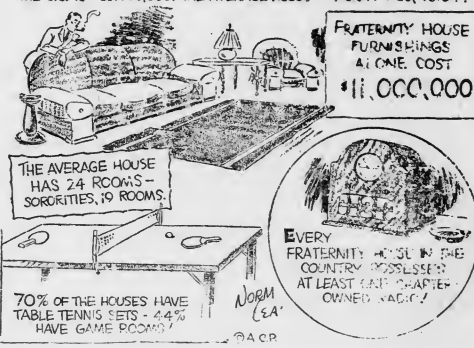 FRATERNITY HOUSE
FURNISHINGS
ALONE COST
$11,000,000
THE AVERAGE HOUSE
HAS 24 ROOMS -
SORORITIES, 19 ROOMS.
EVERY
FRATERNITY HOUSE IN THE
COUNTRY POSSESSES
AT LEAST ONE CHAPTER-
OWNED RADIO!
70% OF THE HOUSES HAVE
TABLE TENNIS SETS - 44%
HAVE GAME ROOMS!
NORM
LEA'
© A.C.P.